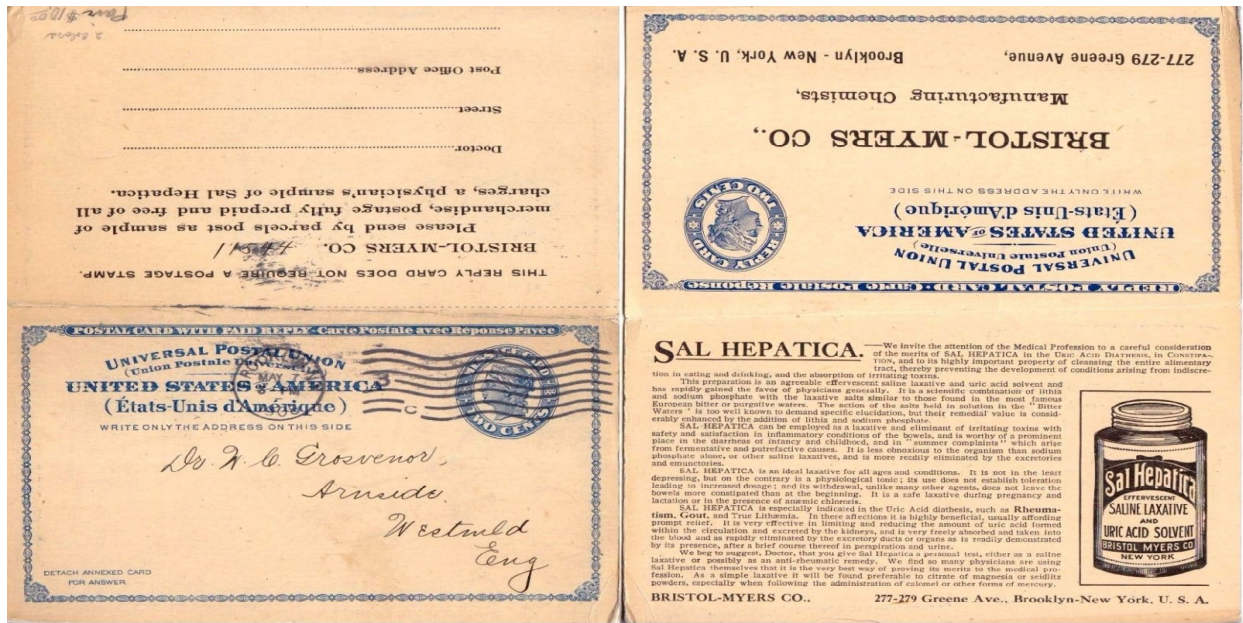 THIS REPLY CARD DOES NOT REQUIRE A POSTAGE STAMP.
BRISTOL-MYERS CO.
Please send by parcels post as sample of
merchandise, postage fully prepaid and free of all
charges, a physician's sample of Sal Hepatica.
Doctor
Street
Post Office Address
2 colors
Pair $10.00
POSTAL CARD WITH PAID REPLY - Carte Postale avec Reponse Payée
UNIVERSAL POSTAL UNION
(Union Postale Universelle)
UNITED STATES OF AMERICA
(États-Unis d'Amérique)
WRITE ONLY THE ADDRESS ON THIS SIDE
TWO CENTS
MAY
C
Dr. W. C. Grosvenor,
Arnside
Westmld
Eng
DETACH ANNEXED CARD
FOR ANSWER
REPLY POSTAL CARD - Carte Postale Réponse
UNIVERSAL POSTAL UNION
(Union Postale Universelle)
UNITED STATES OF AMERICA
(États-Unis d'Amérique)
WRITE ONLY THE ADDRESS ON THIS SIDE
REPLY CARD
TWO CENTS
BRISTOL-MYERS CO.,
Manufacturing Chemists,
277-279 Greene Avenue, Brooklyn - New York, U. S. A.
SAL HEPATICA.—We invite the attention of the Medical Profession to a careful consideration
of the merits of SAL HEPATICA in the URIC ACID DIATHESIS, in CONSTIPA-
TION, and to its highly important property of cleansing the entire alimentary
tract, thereby preventing the development of conditions arising from indiscre-
tion in eating and drinking, and the absorption of irritating toxins.
This preparation is an agreeable effervescent saline laxative and uric acid solvent and
has rapidly gained the favor of physicians generally. It is a scientific combination of lithia
and sodium phosphate with the laxative salts similar to those found in the most famous
European bitter or purgative waters. The action of the salts held in solution in the "Bitter
Waters" is too well known to demand specific elucidation, but their remedial value is consid-
erably enhanced by the addition of lithia and sodium phosphate.
SAL HEPATICA can be employed as a laxative and eliminant of irritating toxins with
safety and satisfaction in inflammatory conditions of the bowels, and is worthy of a prominent
place in the diarrheas of infancy and childhood, and in "summer complaints" which arise
from fermentative and putrefactive causes. It is less obnoxious to the organism than sodium
phosphate alone, or other saline laxatives, and is more readily eliminated by the excretories
and emunctories.
SAL HEPATICA is an ideal laxative for all ages and conditions. It is not in the least
depressing, but on the contrary is a physiological tonic; its use does not establish toleration
leading to increased dosage; and its withdrawal, unlike many other agents, does not leave the
bowels more constipated than at the beginning. It is a safe laxative during pregnancy and
lactation or in the presence of anæmic chloresis.
SAL HEPATICA is especially indicated in the Uric Acid diathesis, such as Rheuma-
tism, Gout, and True Lithæmia. In these affections it is highly beneficial, usually affording
prompt relief. It is very effective in limiting and reducing the amount of uric acid formed
within the circulation and excreted by the kidneys, and is very freely absorbed and taken into
the blood and as rapidly eliminated by the excretory ducts or organs as is readily demonstrated
by its presence, after a brief course thereof in perspiration and urine.
We beg to suggest, Doctor, that you give Sal Hepatica a personal test, either as a saline
laxative or possibly as an anti-rheumatic remedy. We find so many physicians are using
Sal Hepatica themselves that it is the very best way of proving its merits to the medical pro-
fession. As a simple laxative it will be found preferable to citrate of magnesia or seidlitz
powders, especially when following the administration of calomel or other forms of mercury.
BRISTOL-MYERS CO., 277-279 Greene Ave., Brooklyn-New York, U. S. A.
Sal Hepatica
EFFERVESCENT
SALINE LAXATIVE
AND
URIC ACID SOLVENT
BRISTOL MYERS CO
NEW YORK